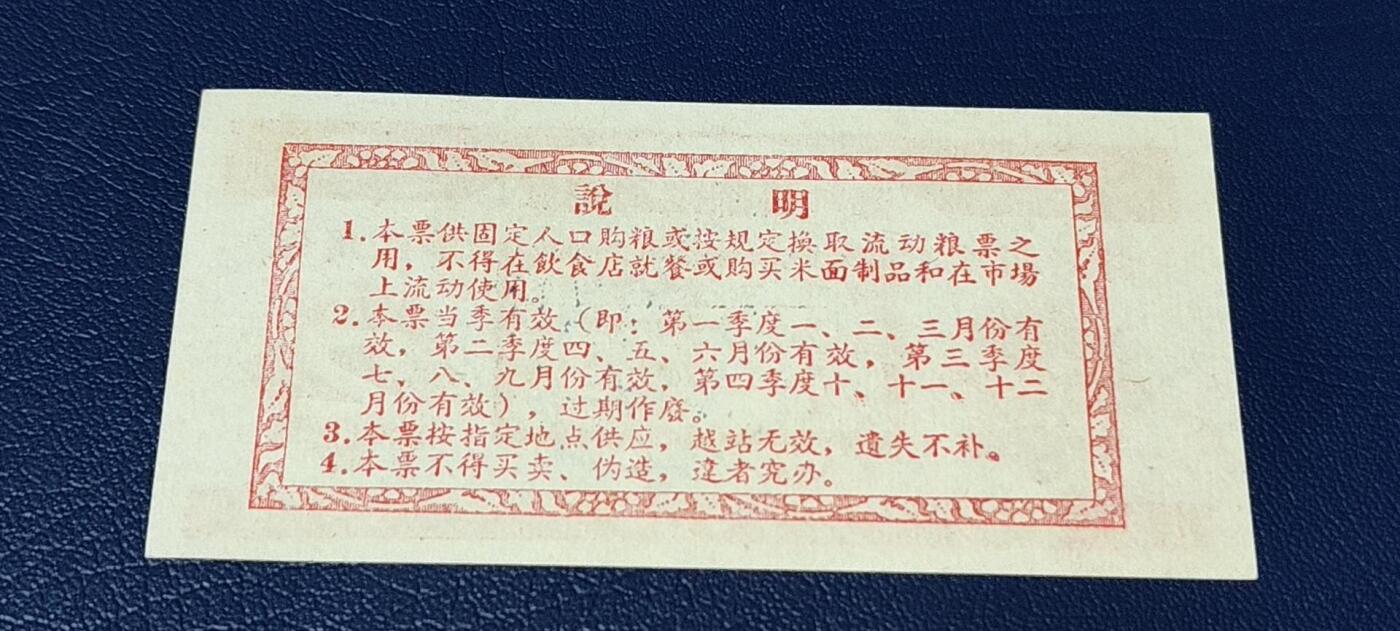 說 明
1.本票供固定人口购粮或按规定換取流动粮票之
用，不得在飲食店就餐或购买米面制品和在市場
上流动使用。
2.本票当季有效（即：第一季度一、二、三月份有
效，第二季度四、五、六月份有效，第三季度
七、八、九月份有效，第四季度十、十一、十二
月份有效），过期作廢。
3.本票按指定地点供应，越站无效，遺失不补。
4.本票不得买卖、伪造，違者究办。